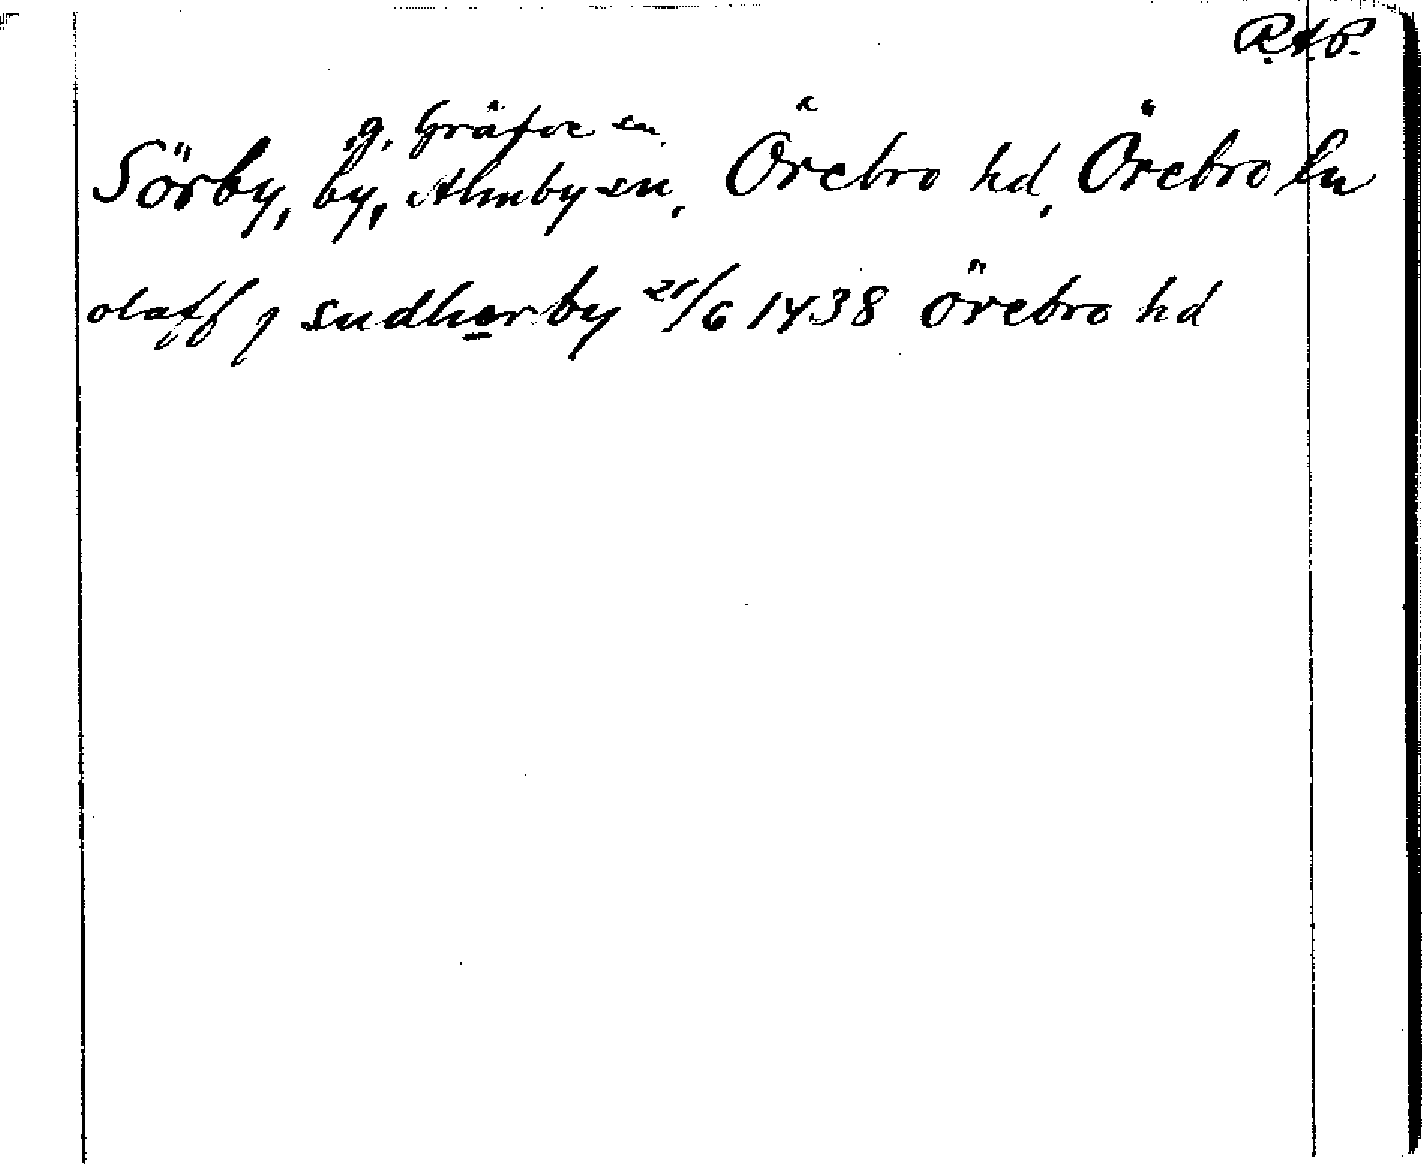 R.A.P.
g. Gräfve sn.
Sörby, by, Almby sn, Örebro hd, Örebro ln
olaff j sudherby 21/6 1438 örebro hd